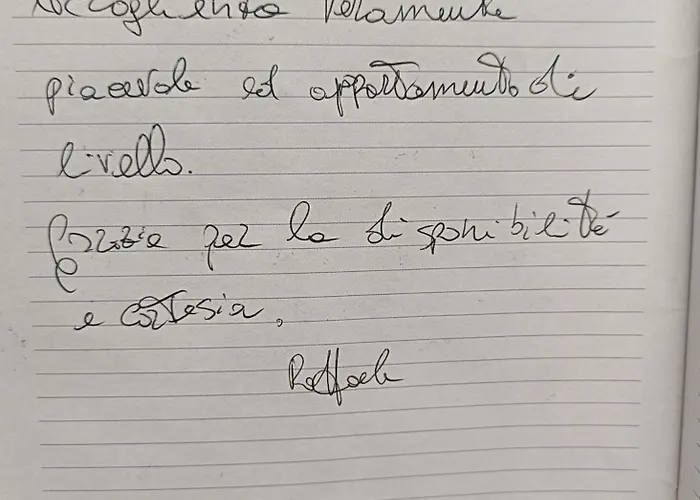 Accoglienza veramente
piacevole ed appartamento di
livello.
Grazie per la disponibilità
e cortesia,
Raffaele